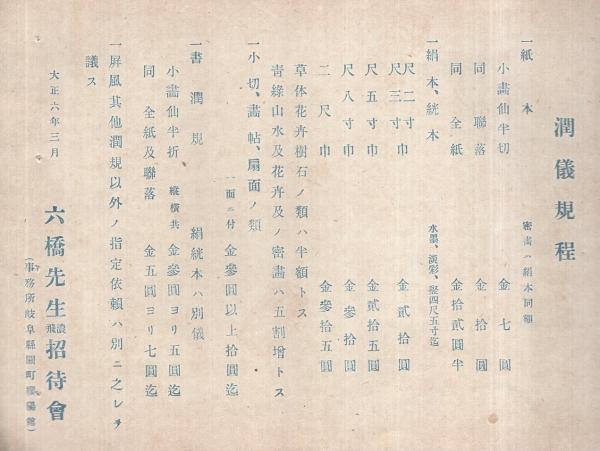 潤儀規程
一紙本 密畵ハ絹本同額
小畵仙半切 金七圓
同聯落 金拾圓
同全紙 金拾貳圓半
一絹本、絖本 水墨、淡彩、竪四尺五寸迄
尺二寸巾
尺三寸巾 金貳拾圓
尺五寸巾 金貳拾五圓
尺八寸巾 金參拾圓
二尺巾 金參拾五圓
草体花卉樹石ノ類ハ半額トス
靑綠山水及花卉及ノ密畵ハ五割增トス
一小切、畵帖、扇面ノ類
一面ニ付 金參圓以上拾圓迄
一書潤規 絹絖本ハ別儀
小畵仙半折 縱橫共 金參圓ヨリ五圓迄
同全紙及聯落 金五圓ヨリ七圓迄
一屏風其他潤規以外ノ指定依賴ハ別ニ之レヲ
議ス
大正六年三月
六橋先生濃飛招待會
(事務所岐阜縣關町館)